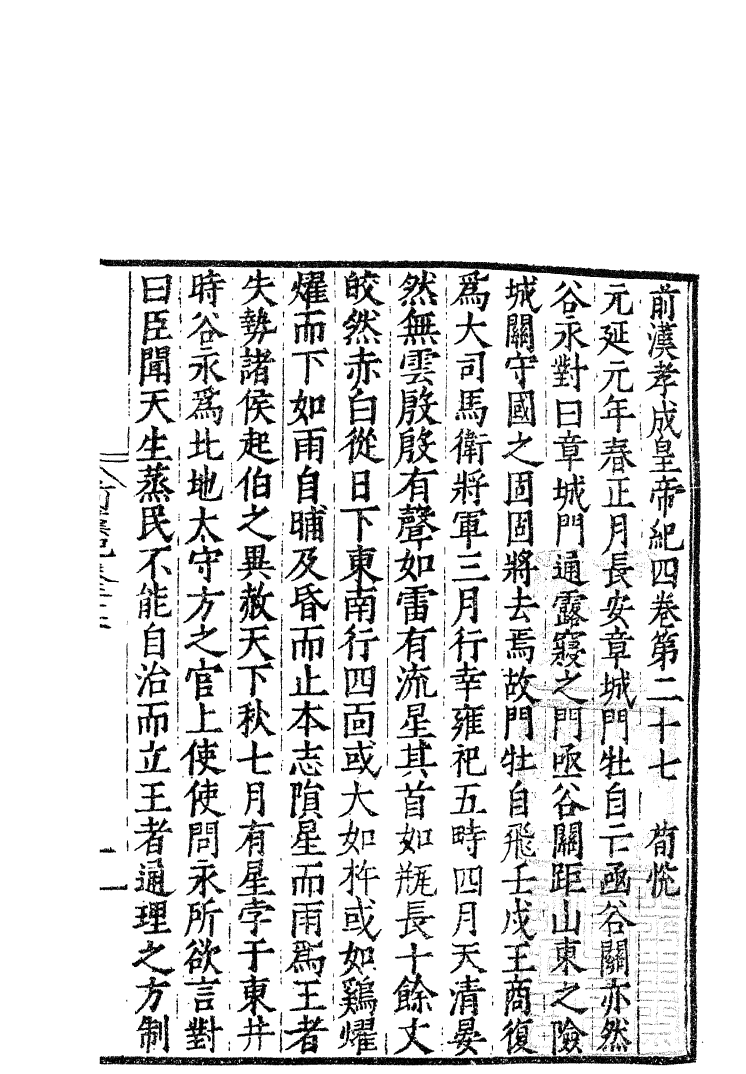 前漢孝成皇帝紀四卷第二十七　荀恱
元延元年春正月長安章城門牡自亡凾谷關亦然
谷永對曰章城門通露寢之門凾谷關距山東之險
城關守國之固固將去焉故門牡自飛壬戌王商復
爲大司馬衛將軍三月行幸雍祀五畤四月天清晏
然無雲殷殷有聲如雷有流星其首如瓶長十餘丈
皎然赤白從日下東南行四面或大如杵或如鷄燿
燿而下如雨自晡及昏而止本志隕星而雨爲王者
失勢諸侯起伯之異赦天下秋七月有星孛于東井
時谷永爲北地太守方之官上使使問永所欲言對
曰臣聞天生蒸民不能自治而立王者通理之方制